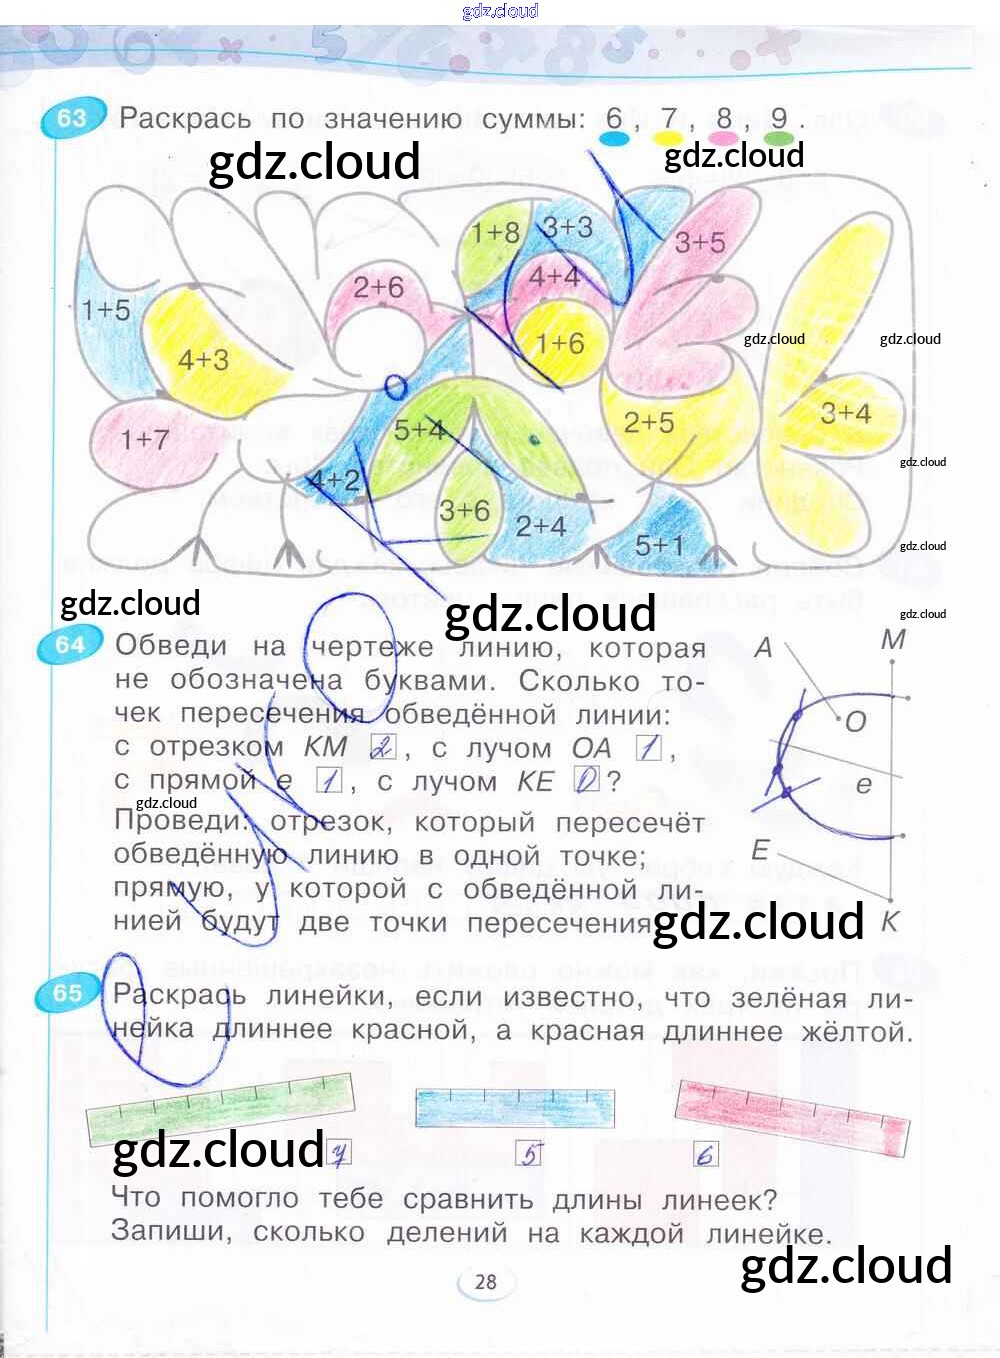 gdz.cloud
63 Раскрась по значению суммы: 6, 7, 8, 9.
gdz.cloud gdz.cloud
1+8 3+3 3+5
2+6 4+4
1+5 1+6 gdz.cloud gdz.cloud
4+3
1+7 5+4 2+5 3+4
gdz.cloud
4+2 3+6 2+4 5+1
gdz.cloud
gdz.cloud gdz.cloud gdz.cloud
64 Обведи на чертеже линию, которая
не обозначена буквами. Сколько то-
чек пересечения обведённой линии:
с отрезком КМ 2, с лучом ОА 1,
с прямой е 1, с лучом КЕ 0?
gdz.cloud
Проведи: отрезок, который пересечёт
обведённую линию в одной точке;
прямую, у которой с обведённой ли-
нией будут две точки пересечения
A M
O
e
E
K
gdz.cloud
65 Раскрась линейки, если известно, что зелёная ли-
нейка длиннее красной, а красная длиннее жёлтой.
gdz.cloud 7 5 6
Что помогло тебе сравнить длины линеек?
Запиши, сколько делений на каждой линейке.
gdz.cloud
28